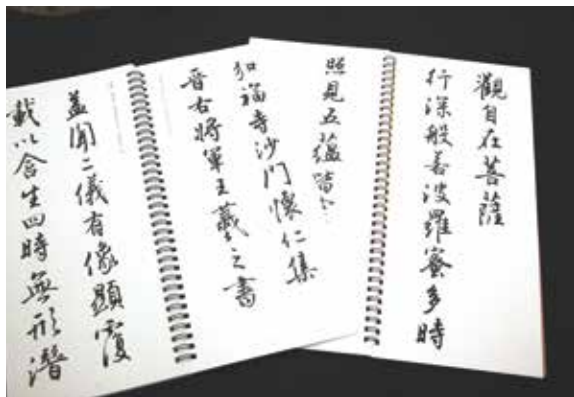 觀自在菩薩
行深般若波羅蜜多時
照見五蘊皆
弘福寺沙門懷仁集
晉右將軍王羲之書
蓋聞二儀有像顯覆
載以含生四時無形潛